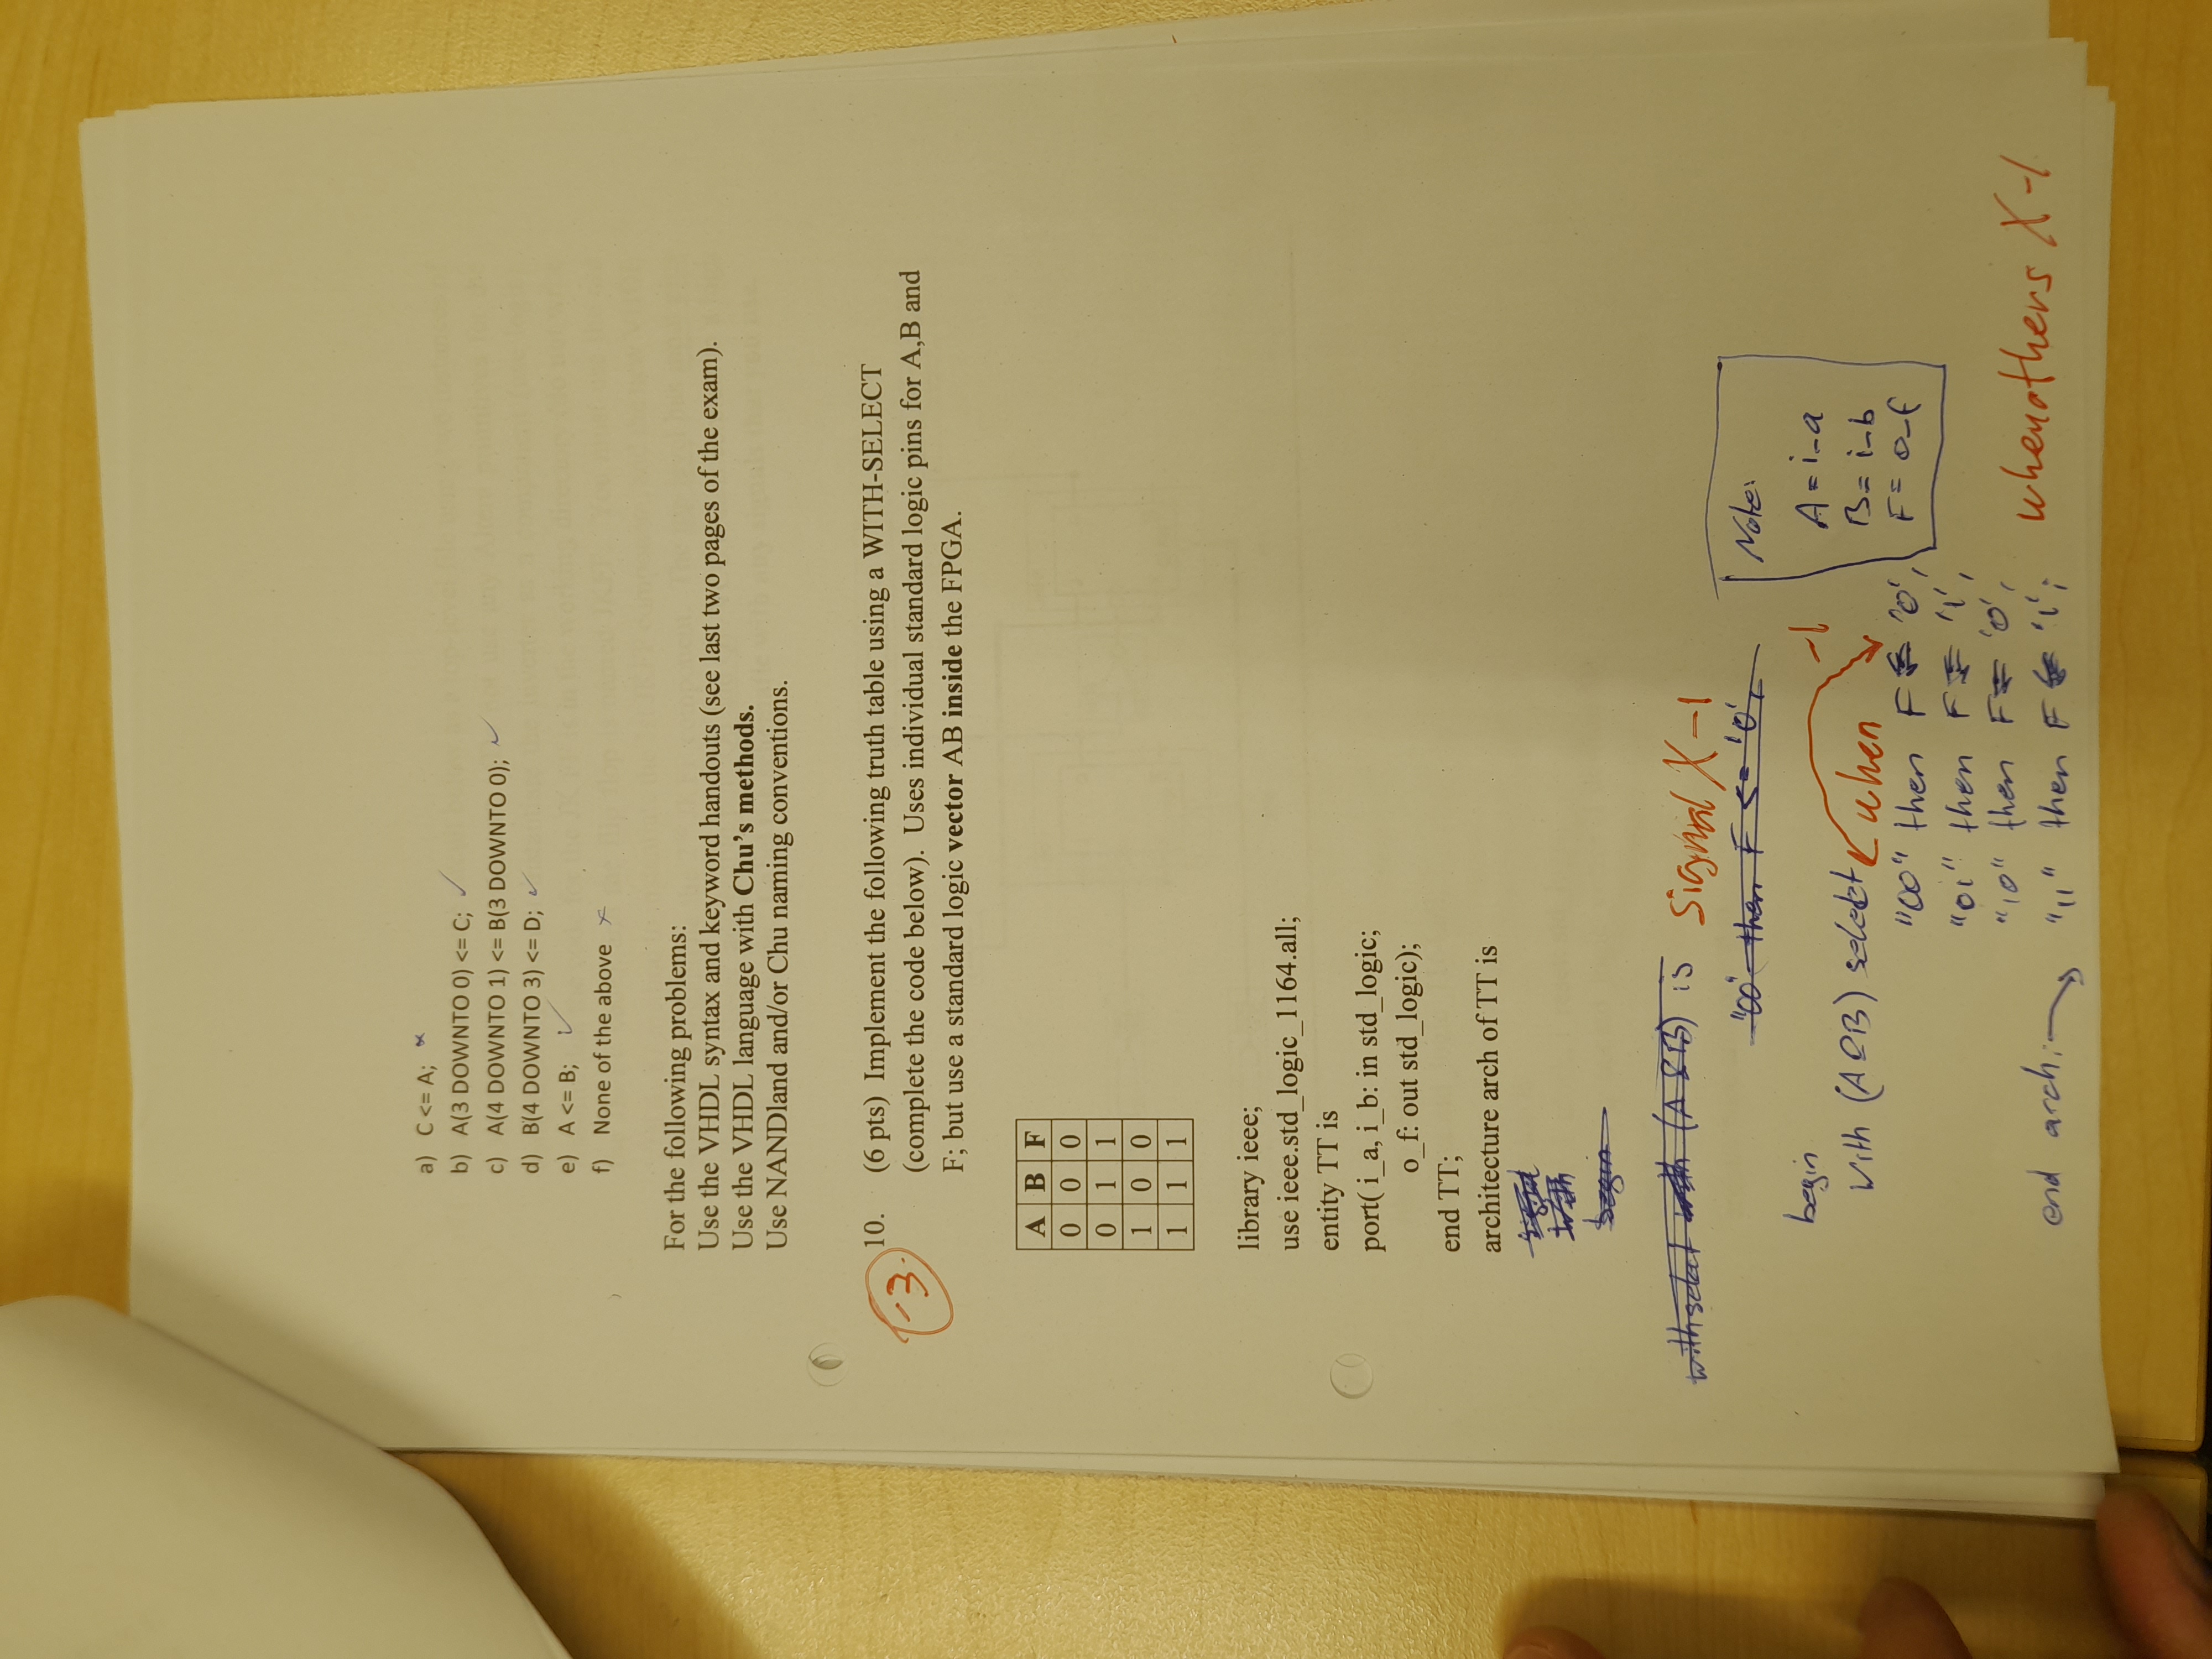 a) C <= A; ×
b) A(3 DOWNTO 0) <= C; ✓
c) A(4 DOWNTO 1) <= B(3 DOWNTO 0); ✓
d) B(4 DOWNTO 3) <= D; ✓
e) A <= B; ✓
f) None of the above ×
For the following problems:
Use the VHDL syntax and keyword handouts (see last two pages of the exam).
Use the VHDL language with Chu's methods.
Use NANDland and/or Chu naming conventions.
-3
10. (6 pts) Implement the following truth table using a WITH-SELECT
(complete the code below). Uses individual standard logic pins for A,B and
F; but use a standard logic vector AB inside the FPGA.
A B F
0 0 0
0 1 1
1 0 0
1 1 1
library ieee;
use ieee.std_logic_1164.all;
entity TT is
port( i_a, i_b: in std_logic;
o_f: out std_logic);
end TT;
architecture arch of TT is
signal
with
begin
with select (A & B) is
signal X -1
"00" then F <= '0',
Note:
A = i_a
B = i_b
F = o_f
begin
-1
with (A&B) select
when
"00" then F <= '0',
"01" then F <= '1',
"10" then F <= '0',
"11" then F <= '1';
end arch;
when others X -1